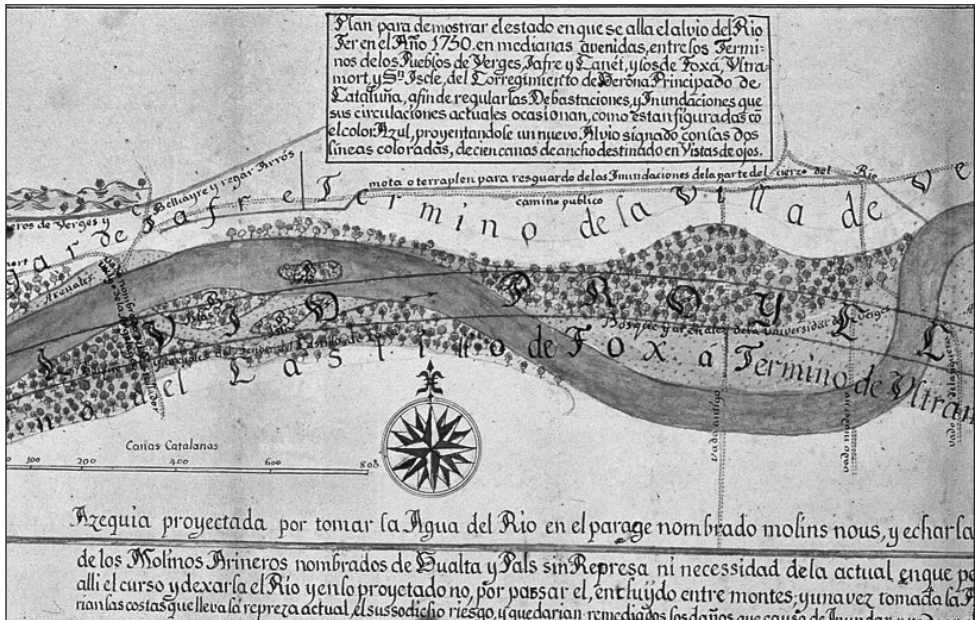 Plan para demostrar el estado en que se alla el alvio del Rio
Ter en el Año 1750. en medianas avenidas, entre los Termi-
nos de los Pueblos de Verges, Jafre y Canet, y los de Foxá, Vltra-
mort, y Sn. Iscle, del Corregimiento de Gerona Principado de
Cataluña, afin de regular las Debastaciones, y Inundaciones que
sus circulaciones actuales ocasionan, como estan figuradas cõ
el color Azul, proyentandose un nuevo Alvio signado con las dos
lineas coloradas, de cien canas de ancho destinado en Vistas de ojos.
Bellcayre y regar Arrós
mota o terraplen para resguardo de las Inundaciones de la parte del cierzo del Rio
camino publico
eros de Verges y
gar de Jafre
Termino de la Villa de Ve
Arenales
Isla
Isla
A L V I O P R O Y E C
Bosque y arenales de la Universidad de Verges
na del Castillo de Foxá
Termino de Vltram
vado antigo
vado moderno
Canas Catalanas
100 200 400 600 800
Azequia proyectada por tomar la Agua del Rio en el parage nombrado molins nous, y echarla
de los Molinos Arineros nombrados de Gualta y Pals sin Represa ni necessidad de la actual, en que p
alli el curso y dexarla el Rio y en lo proyetado no, por passar el, encluÿdo entre montes; y una vez tomada la A
rian las costas que lleva la repreza actual, el sussodicho riesgo, y quedarian remediados los daños que causa de Inundar